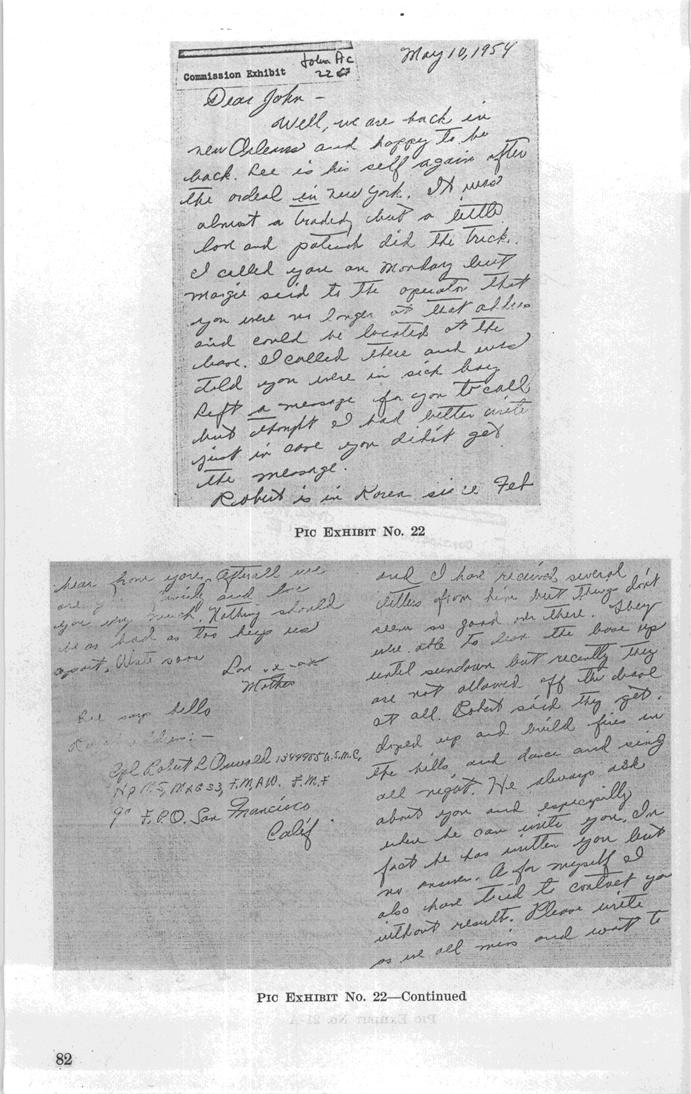 Commission Exhibit
May 10, 1954
Dear John -
Well, we are back in
new Orleans and happy to be
back. Lee is his self again after
the ordeal in new york. It was
almost a but a little
love and did the trick.
I called you on Monday but
Margie said to the operator that
you were no longer at that address
and could be located at the
base. I called there and was
told you were in sick bay
Left a message for you to call
but thought I had better write
just in case you didn't get
the message.
Robert is in Korea since Feb
PIC EXHIBIT NO. 22
hear from you. Afterall we
are and love
you very much. Nothing should
be as bad as too keep us
apart. Write soon
Love x-ox
Mother
Lee says hello
Cpl Robert L Oswald U.S.M.C.
F.M.F
F.P.O. San Francisco
Calif.
and I have received several
letters from him but things don't
seem so good over there. They
were able to the base up
until sundown but recently they
are not allowed off the base
at all. Robert said they get
doped up and build fires in
the hills and dance and sing
all night. He always ask
about you and especially
where he can write you. In
fact he has written you but
no answer. As for myself I
also have tried to contact you
without results. Please write
as we all miss and want to
PIC EXHIBIT NO. 22—Continued
82